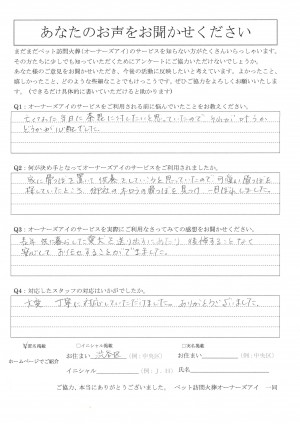 あなたのお声をお聞かせください
まだまだペット訪問火葬(オーナーズアイ)のサービスを知らない方がたくさんいらっしゃいます。
その方たちに少しでも知っていただくためにアンケートにご協力いただけないでしょうか。
あなた様のご意見をお聞かせいただき、今後の活動に反映したいと考えています。よかったこと、
嬉しかったこと、どのような些細なことでもけっこうです。ぜひご協力をよろしくお願いいたしま
す。(できるだけ具体的に書いていただけると助かります)
Q1:オーナーズアイのサービスをご利用される前に悩んでいたことをお教えください。
亡くなった当日に
どうか心配でした。
Q2:何が決め手となってオーナーズアイのサービスをご利用されましたか。
家に骨つぼを置いて供養をしていこうと思っていたので可愛い骨つぼを
探していたところ、御社の
Q3:オーナーズアイのサービスを実際にご利用なさってみての感想をお聞かせください。
長年共に暮らした愛犬を送り出すにあたり 後悔することなく
安心して お任せすることができました。
Q4:対応したスタッフの対応はいかがでしたか。
大変 丁寧に対応していただけました。ありがとうございました。
匿名掲載 □イニシャル掲載 □実名掲載
ホームページでご紹介
お住まい 渋谷区 (例:中央区) お住まい (例:中央区)
イニシャル 氏名
ご協力、本当にありがとうございました。 ペット訪問火葬オーナーズアイ 一同